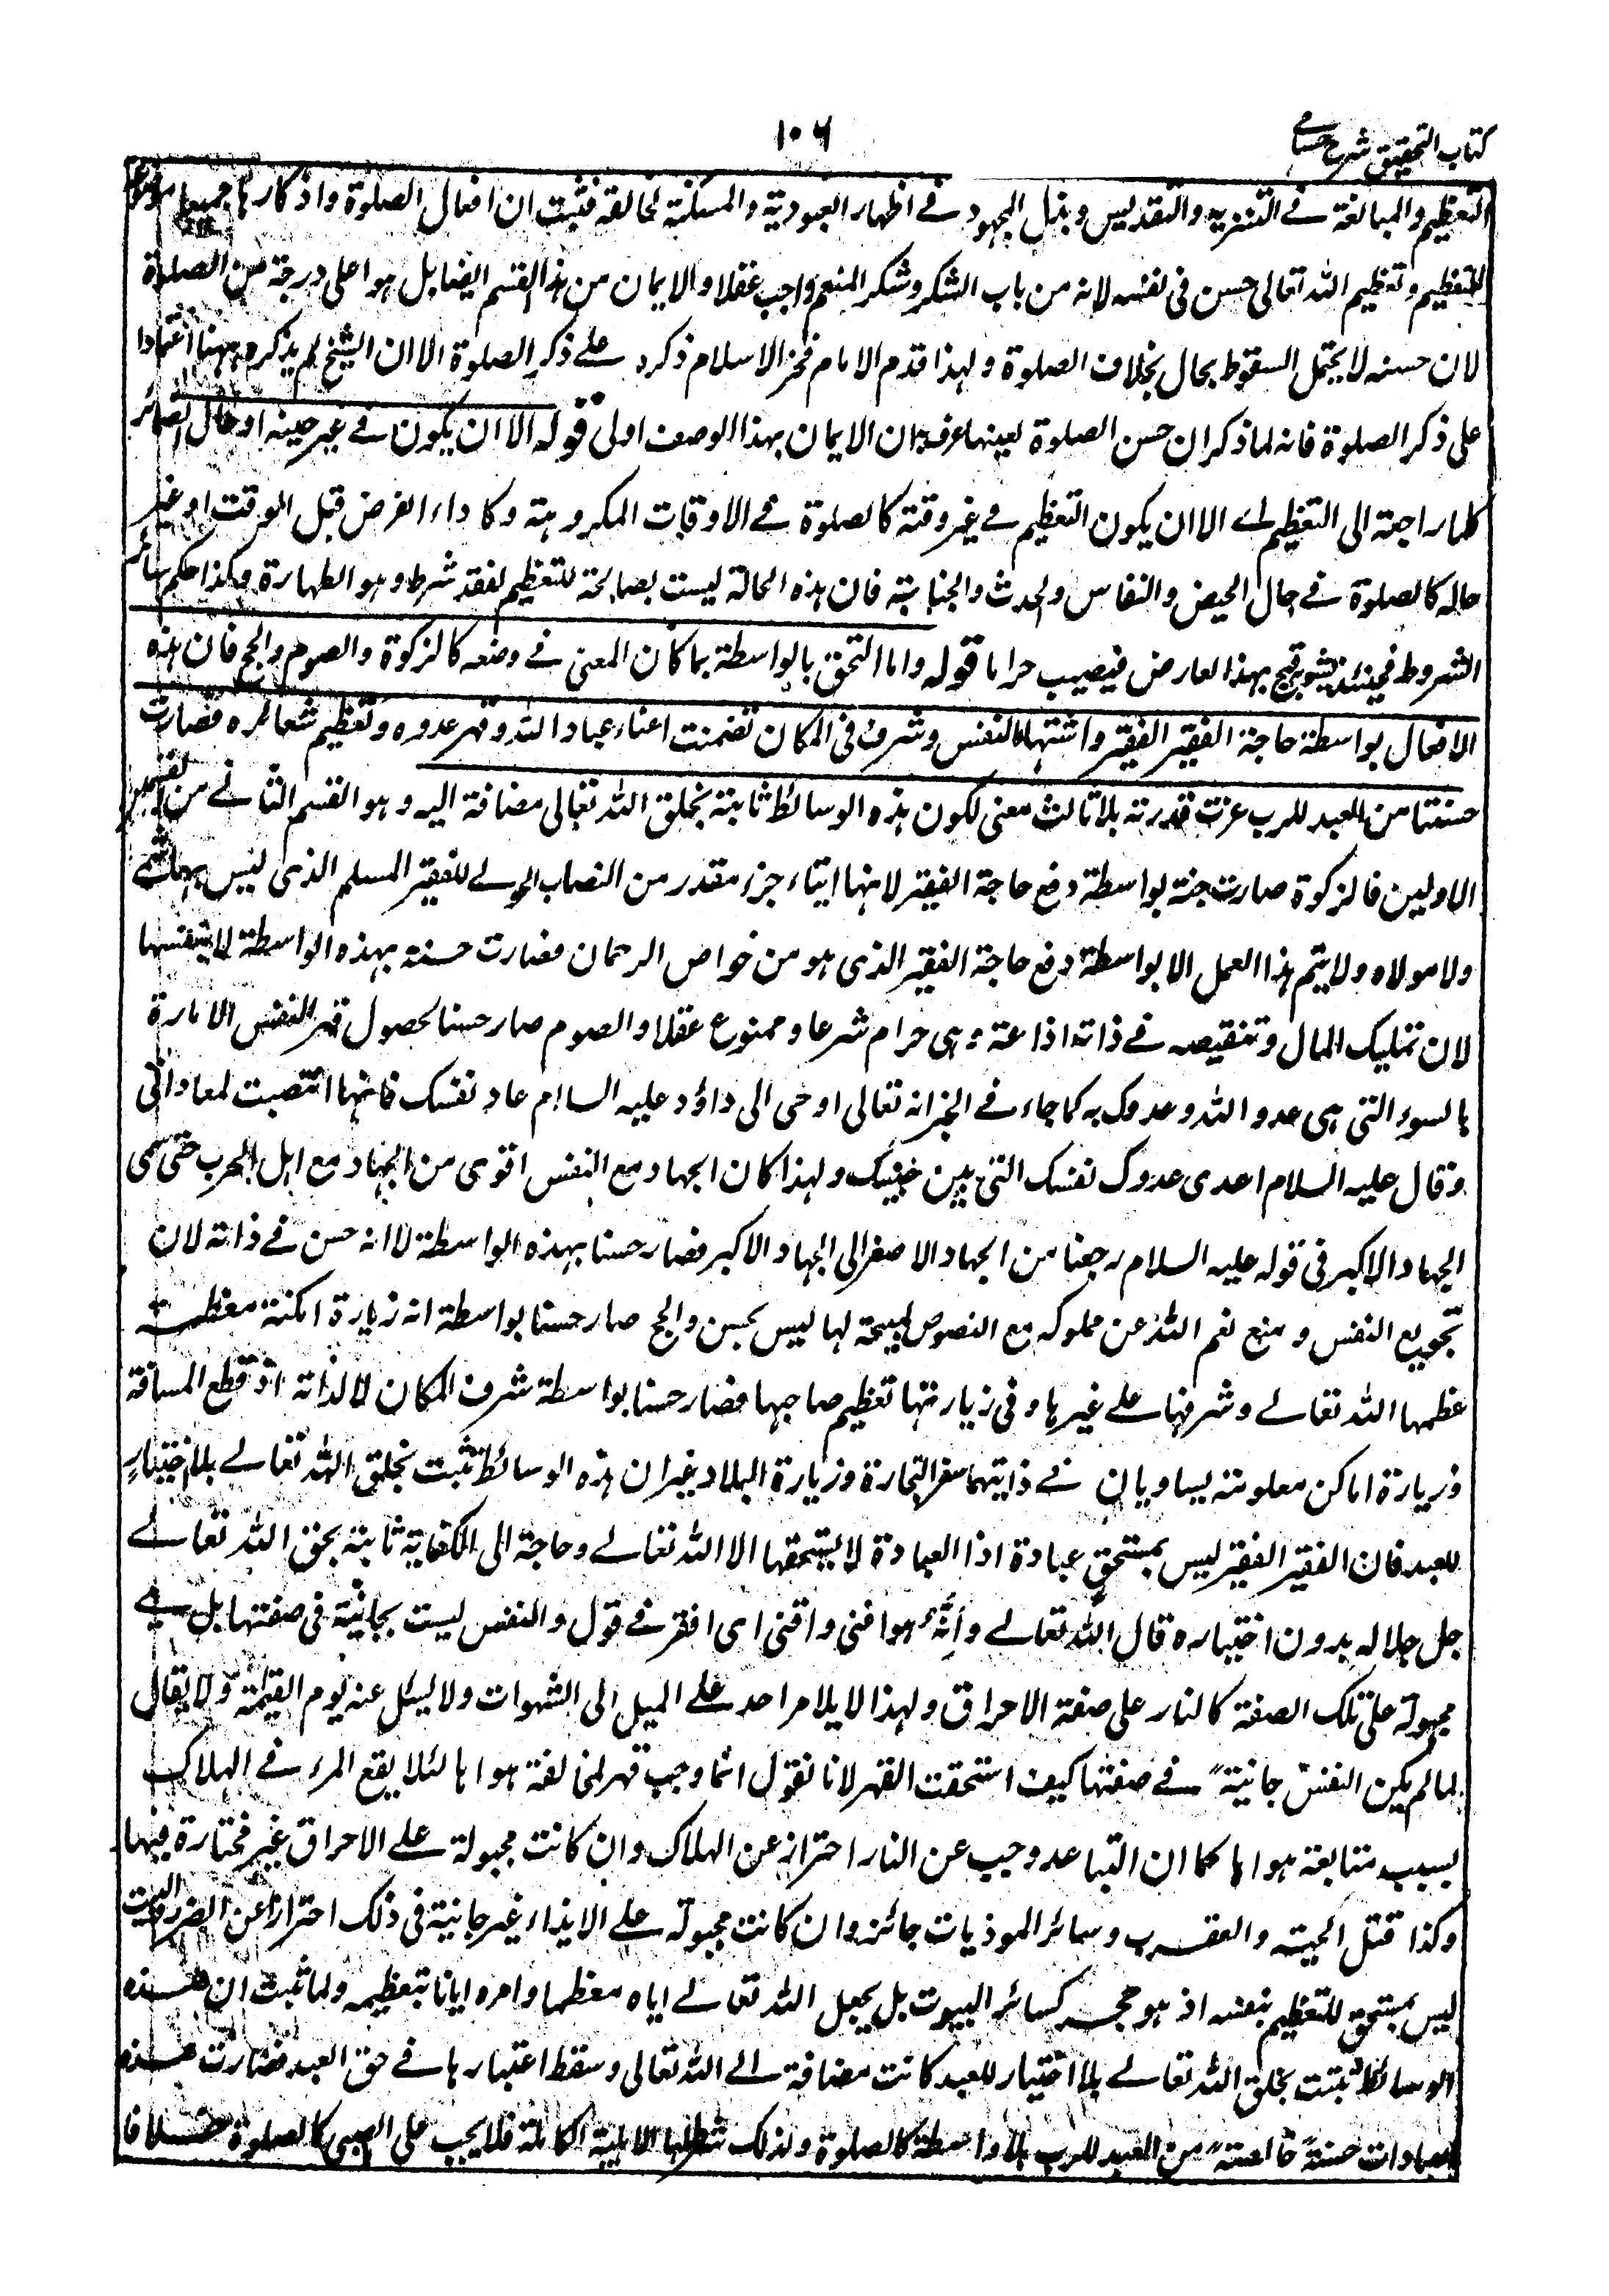 كتاب التحقيق شرح حسامے
١٠٦
التعظيم والمبالغة فے التنزيه والتقديس وبذل المجهود فے اظهار العبودية والمسكنة لخالقه فثبت ان افعال الصلوة واذكارها جميعا
للتعظيم وتعظيم الله تعالى حسن فى نفسه لانه من باب الشكر وشكر المنعم واجب عقلا والايمان من هذا القسم ايضا بل هو اعلى درجة من الصلوة
لان حسنه لا يحتمل السقوط بحال بخلاف الصلوة ولهذا قدم الامام فخر الاسلام ذكره علے ذكر الصلوة الا ان الشيخ لم يذكره ههنا اعتمادا
على ذكر الصلوة فانه لما ذكر ان حسن الصلوة لعينها عرف ان الايمان بهذا الوصف اولى قوله الا ان يكون فے غير حينه او حال الضمائر
كلها راجعة الى التعظيم اے الا ان يكون التعظيم فے غير وقته كالصلوة فے الاوقات المكروهة وكاداء الفرض قبل الوقت او غير
حاله كالصلوة فے حال الحيض والنفاس والحدث والجنابة فان هذه الحالة ليست بصالحة للتعظيم لفقد شرط وهو الطهارة وكذا حكم سائر
الشروط فحينئذ يشوبه قبح بهذا العارض فيصير حراما قوله واما التحق بالواسطة بما كان المعنى فے وضعه كالزكوة والصوم والحج فان هذه
الافعال بواسطة حاجة الفقير الفقير واشتهاء النفس وشرف فى المكان تضمنت اغناء عباد الله وقهر عدوه وتعظيم شعائره فصارت
حسنتا من العبد للرب عزت قدرته بلا ثالث معنى لكون هذه الوسائط ثابتة بخلق الله تعالى مضافة اليه وهو القسم الثانے من القسمين
الاولين فالزكوة صارت حسنة بواسطة دفع حاجة الفقير لانها ايتاء جزء مقدر من النصاب الحولے للفقير المسلم الذى ليس بهاشمے
ولا مولاه ولا يتم هذا العمل الا بواسطة دفع حاجة الفقير الذى هو من خواص الرحمان فصارت حسنة بهذه الواسطة لا بنفسها
لان تمليك المال وتنقيصه فے ذاته اذاعة وهى حرام شرعا وممنوع عقلا والصوم صار حسنا لحصول قهر النفس الامارة
بالسوء التى هى عدو الله وعدوك به كما جاء فے الخبر انه تعالى اوحى الى داؤد عليه السلام عاد نفسك فانها انتصبت لمعاداتى
وقال عليه السلام اعدى عدوك نفسك التى بين جنبيك ولهذا كان الجهاد مع النفس اقوى من الجهاد مع اهل الحرب حتى سمى
الجهاد الاكبر فى قوله عليه السلام رجعنا من الجهاد الاصغر الى الجهاد الاكبر فصار حسنا بهذه الواسطة لا انه حسن فے ذاته لان
تجويع النفس ومنع نعم الله عن مملوكه مع النصوص المبيحة لها ليس بحسن والحج صار حسنا بواسطة انه زيارة امكنة معظمة
عظمها الله تعالے وشرفها علے غيرها وفى زيارتها تعظيم صاحبها فصار حسنا بواسطة شرف المكان لا لذاته اذ قطع المسافة
وزيارة اماكن معلومة يساويان فے ذاتيهما سفر التجارة وزيارة البلاد غير ان هذه الوسائط ثبتت بخلق الله تعالے بلا اختيار
للعبد فان الفقير الفقير ليس بمستحق عبادة اذ العبادة لا يستحقها الا الله تعالے وحاجة الى الكفاية ثابتة بخق الله تعالے
جل جلاله بدون اختياره قال الله تعالے وانّه هو اغنى واقنى اى افقر فے قول والنفس ليست بجانية فى صفتها بل هے
مجبولة على تلك الصفة كالنار على صفة الاحراق ولهذا لا يلام احد علے الميل الى الشهوات ولا يسئل عنه يوم القيمة ولا يقال
لما لم يكن النفس جانية فے صفتها كيف استحقت القهر لانا نقول انما وجب قهر لمخالفة هواها لئلا يقع المرء فے الهلاك
بسبب متابعة هواها كما ان التباعد وجب عن النار احتراز عن الهلاك وان كانت مجبولة علے الاحراق غير مختارة فيها
وكذا قتل الحية والعقرب وسائر الموذيات جائز وان كانت مجبولة علے الايذاء غير جانية فى ذلك احترازا عن الضرر والبيت
ليس بمستحق للتعظيم بنفسه اذ هو حجر كسائر البيوت بل بجعل الله تعالے اياه معظما وامره ايانا بتعظيمه ولما ثبت ان هذه
الوسائط ثبتت بخلق الله تعالے بلا اختيار للعبد كانت مضافة الے الله تعالى وسقط اعتبارها فے حق العبد فصارت هذه
العبادات حسنة خالصة من العبد للرب بلا واسطة كالصلوة ولذلك شرطنا لها الاهلية الكاملة فلا يجب على الصبى كالصلوة خلافا